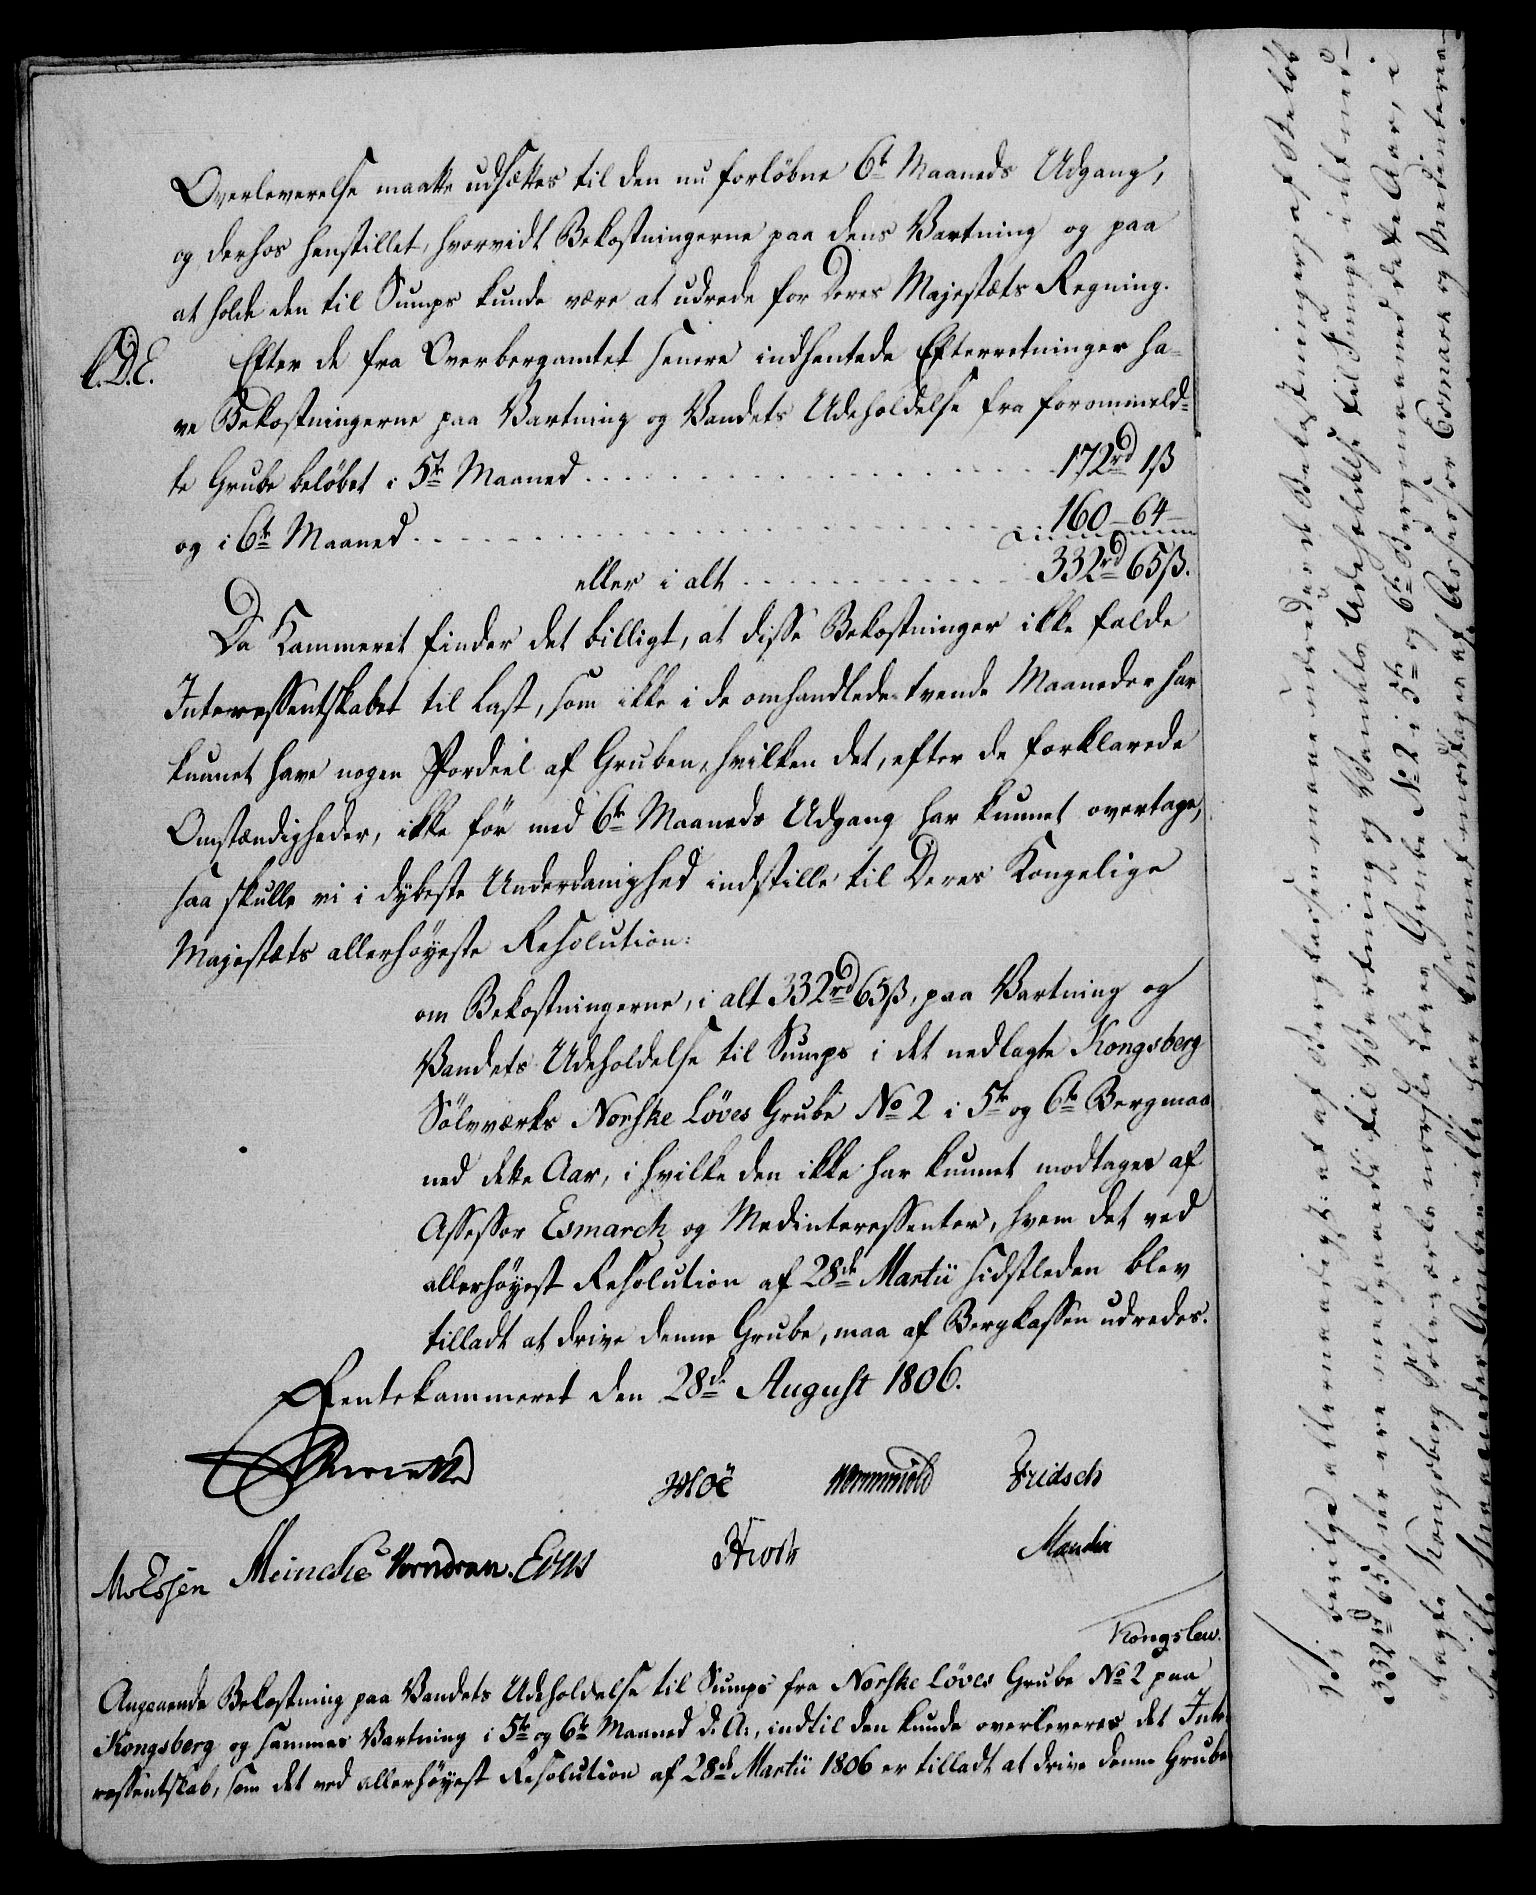 Overleverelse maatte udsættes til den nu forløbne 6te Maaneds Udgang,
og derhos henstillet, hvorvidt Bekostningerne paa dens Vartning og paa
at holde den til Sumps kunde være at udrede for Deres Majestæts Regning.
Efter de fra Overbergamtet senere indhentede Efterretninger ha-
ve Bekostningerne paa Vartning og Vandets Udeholdelse fra forommeld-
te Grube beløbet i 5te Maaned . . . . . . . . . . 172rd 1ß
og i 6te Maaned . . . . . . . . . . 160 - 64 -
eller i alt . . . . . . . . . . 332rd 65ß.
Da Kammeret finder det billigt, at disse Bekostninger ikke falde
Interessentskabet til Last, som ikke i de omhandlede tvende Maaneder har
kunnet have nogen Fordeel af Gruben, hvilken det, efter de forklarede
Omstændigheder, ikke før med 6te Maaneds Udgang har kunnet overtage,
saa skulle vi i dybeste Underdanighed indstille til Deres Kongelige
Majestæts allerhøyeste Resolution:
om Bekostningerne, i alt 332rd 65ß, paa Vartning og
Vandets Udeholdelse til Sumps i det nedlagte Kongsberg
Sølvværks Norske Løves Grube No 2 i 5te og 6te Bergmaa
ned dette Aar, i hvilke den ikke har kunnet modtages af
Assessor Esmarch og Medinteressenter, hvem det ved
allerhøyest Resolution af 28de Martii sidstleden blev
tilladt at drive denne Grube, maa af Bergkassen udredes.
Rentekammeret den 28de August 1806.
Moë Wormskiold Fridsch
Meincke Vorndran.
Kongslew.
Angaaende Bekostning paa Vandets Udeholdelse til Sumps fra Norske Løves Grube No 2 paa
Kongsberg og sammes Vartning i 5te og 6te Maaned d: A:, indtil den kunde overleveres det Inte
ressentskab, som det ved allerhøyest Resolution af 28de Martii 1806 er tilladt at drive denne Grube
Vi bevilge allernaadigst: at af Bergkassen maae udredes de Bekostninger, af Beløb
332rd 65ß, der ere medgaaede til Vartning og Vandets Udeholdelse til Sumps i det ned-
lagte Kongsberg Sølvværks norske Løves Grube No 2 i 5te og 6te Bergmaaned dette Aar, i
hvilke Maaneder Gruben ikke har kunnet modtages af Assessor Esmark og Medinteressen